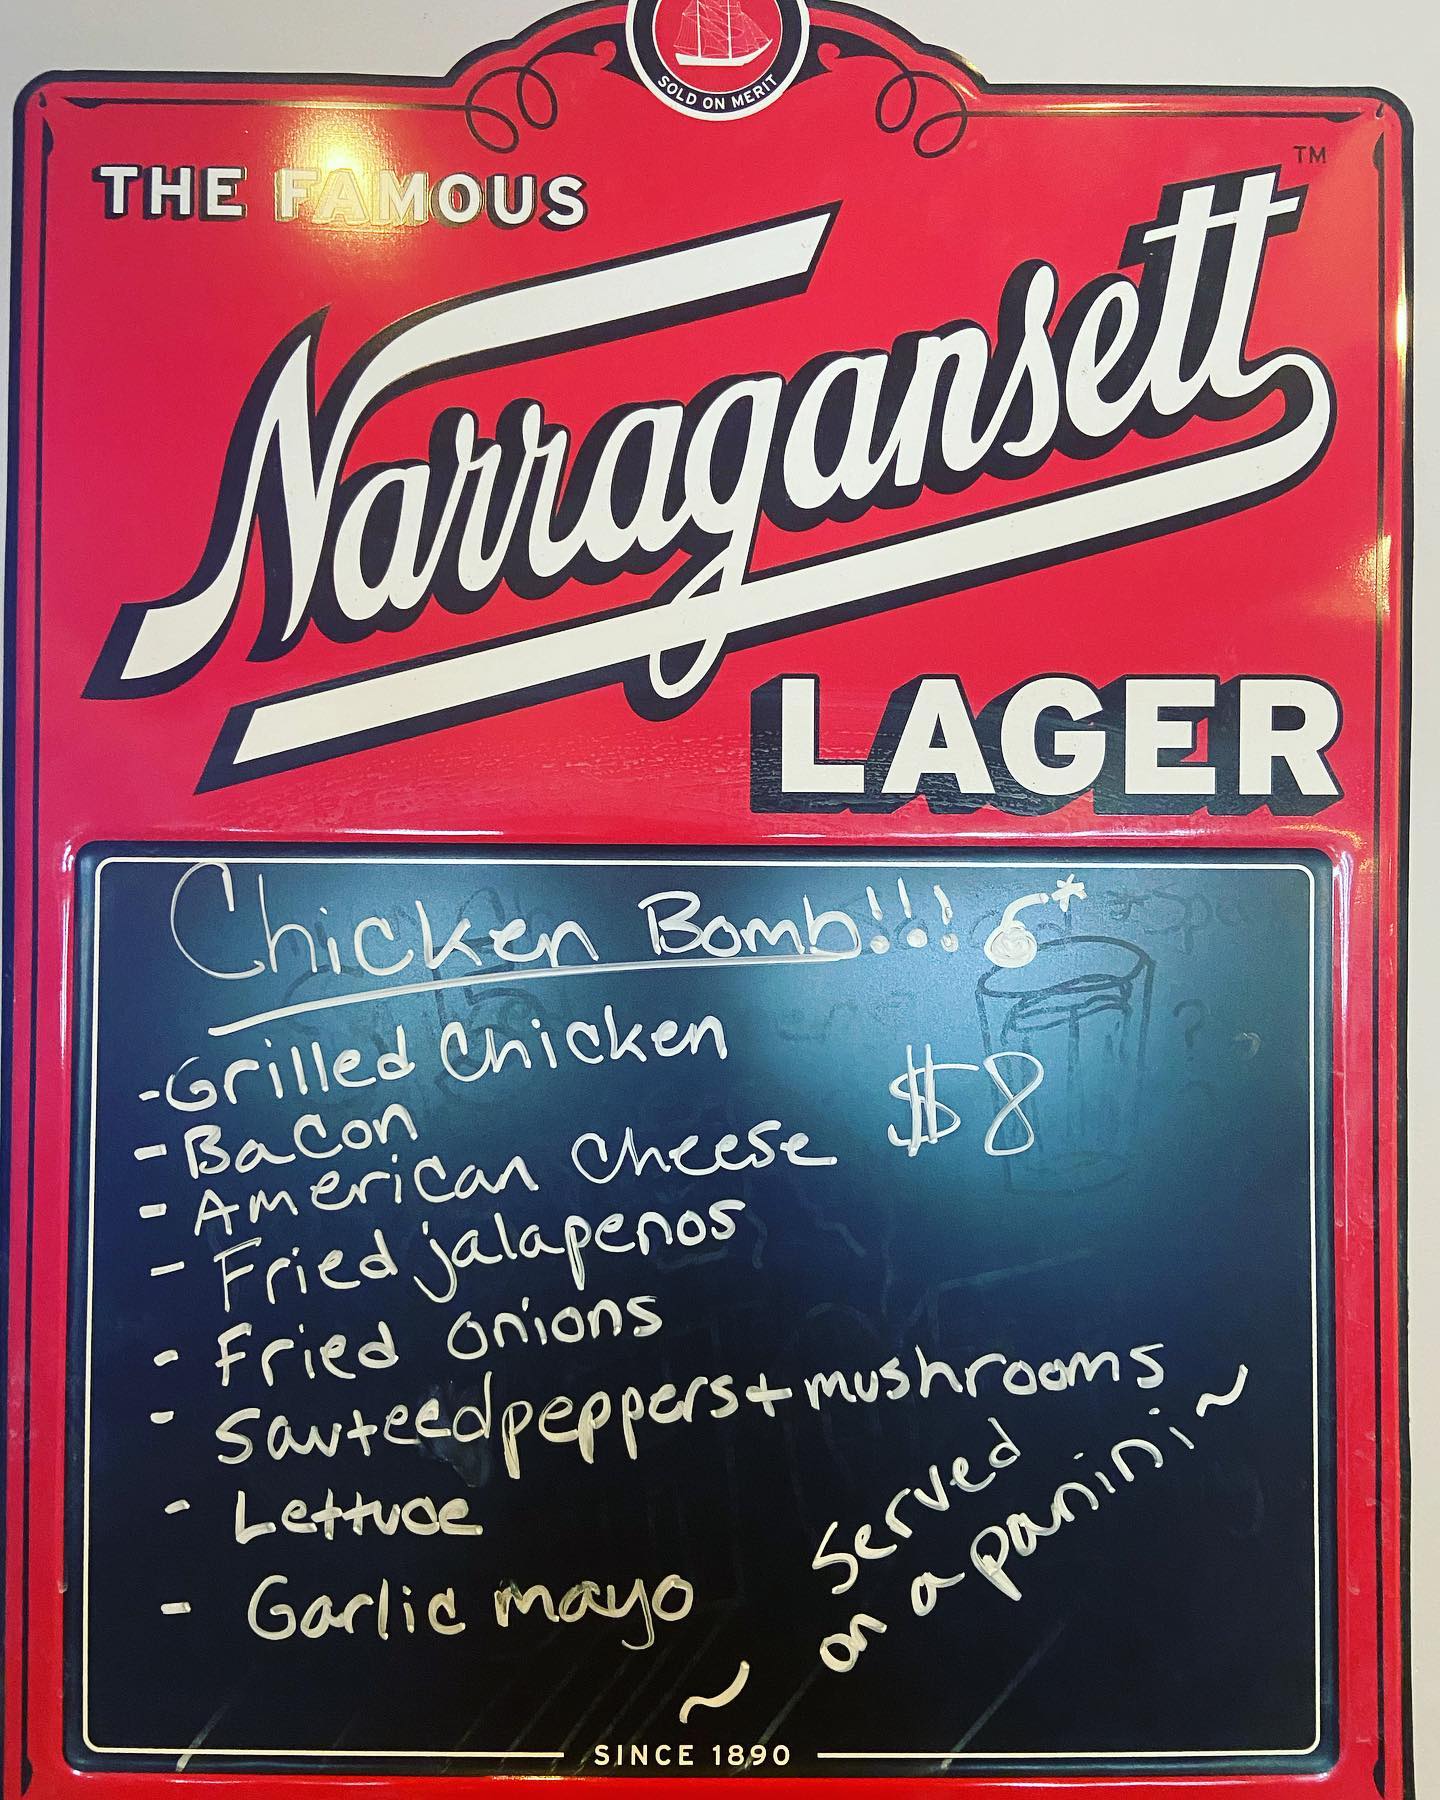 SOLD ON MERIT
THE FAMOUS
TM
Narragansett
LAGER
Chicken Bomb!!!
-Grilled Chicken
- Bacon
- American Cheese $8
- Fried jalapenos
- Fried onions
- Sauteed peppers + mushrooms
- Lettuce
- Garlic mayo
~ served
on a panini ~
SINCE 1890